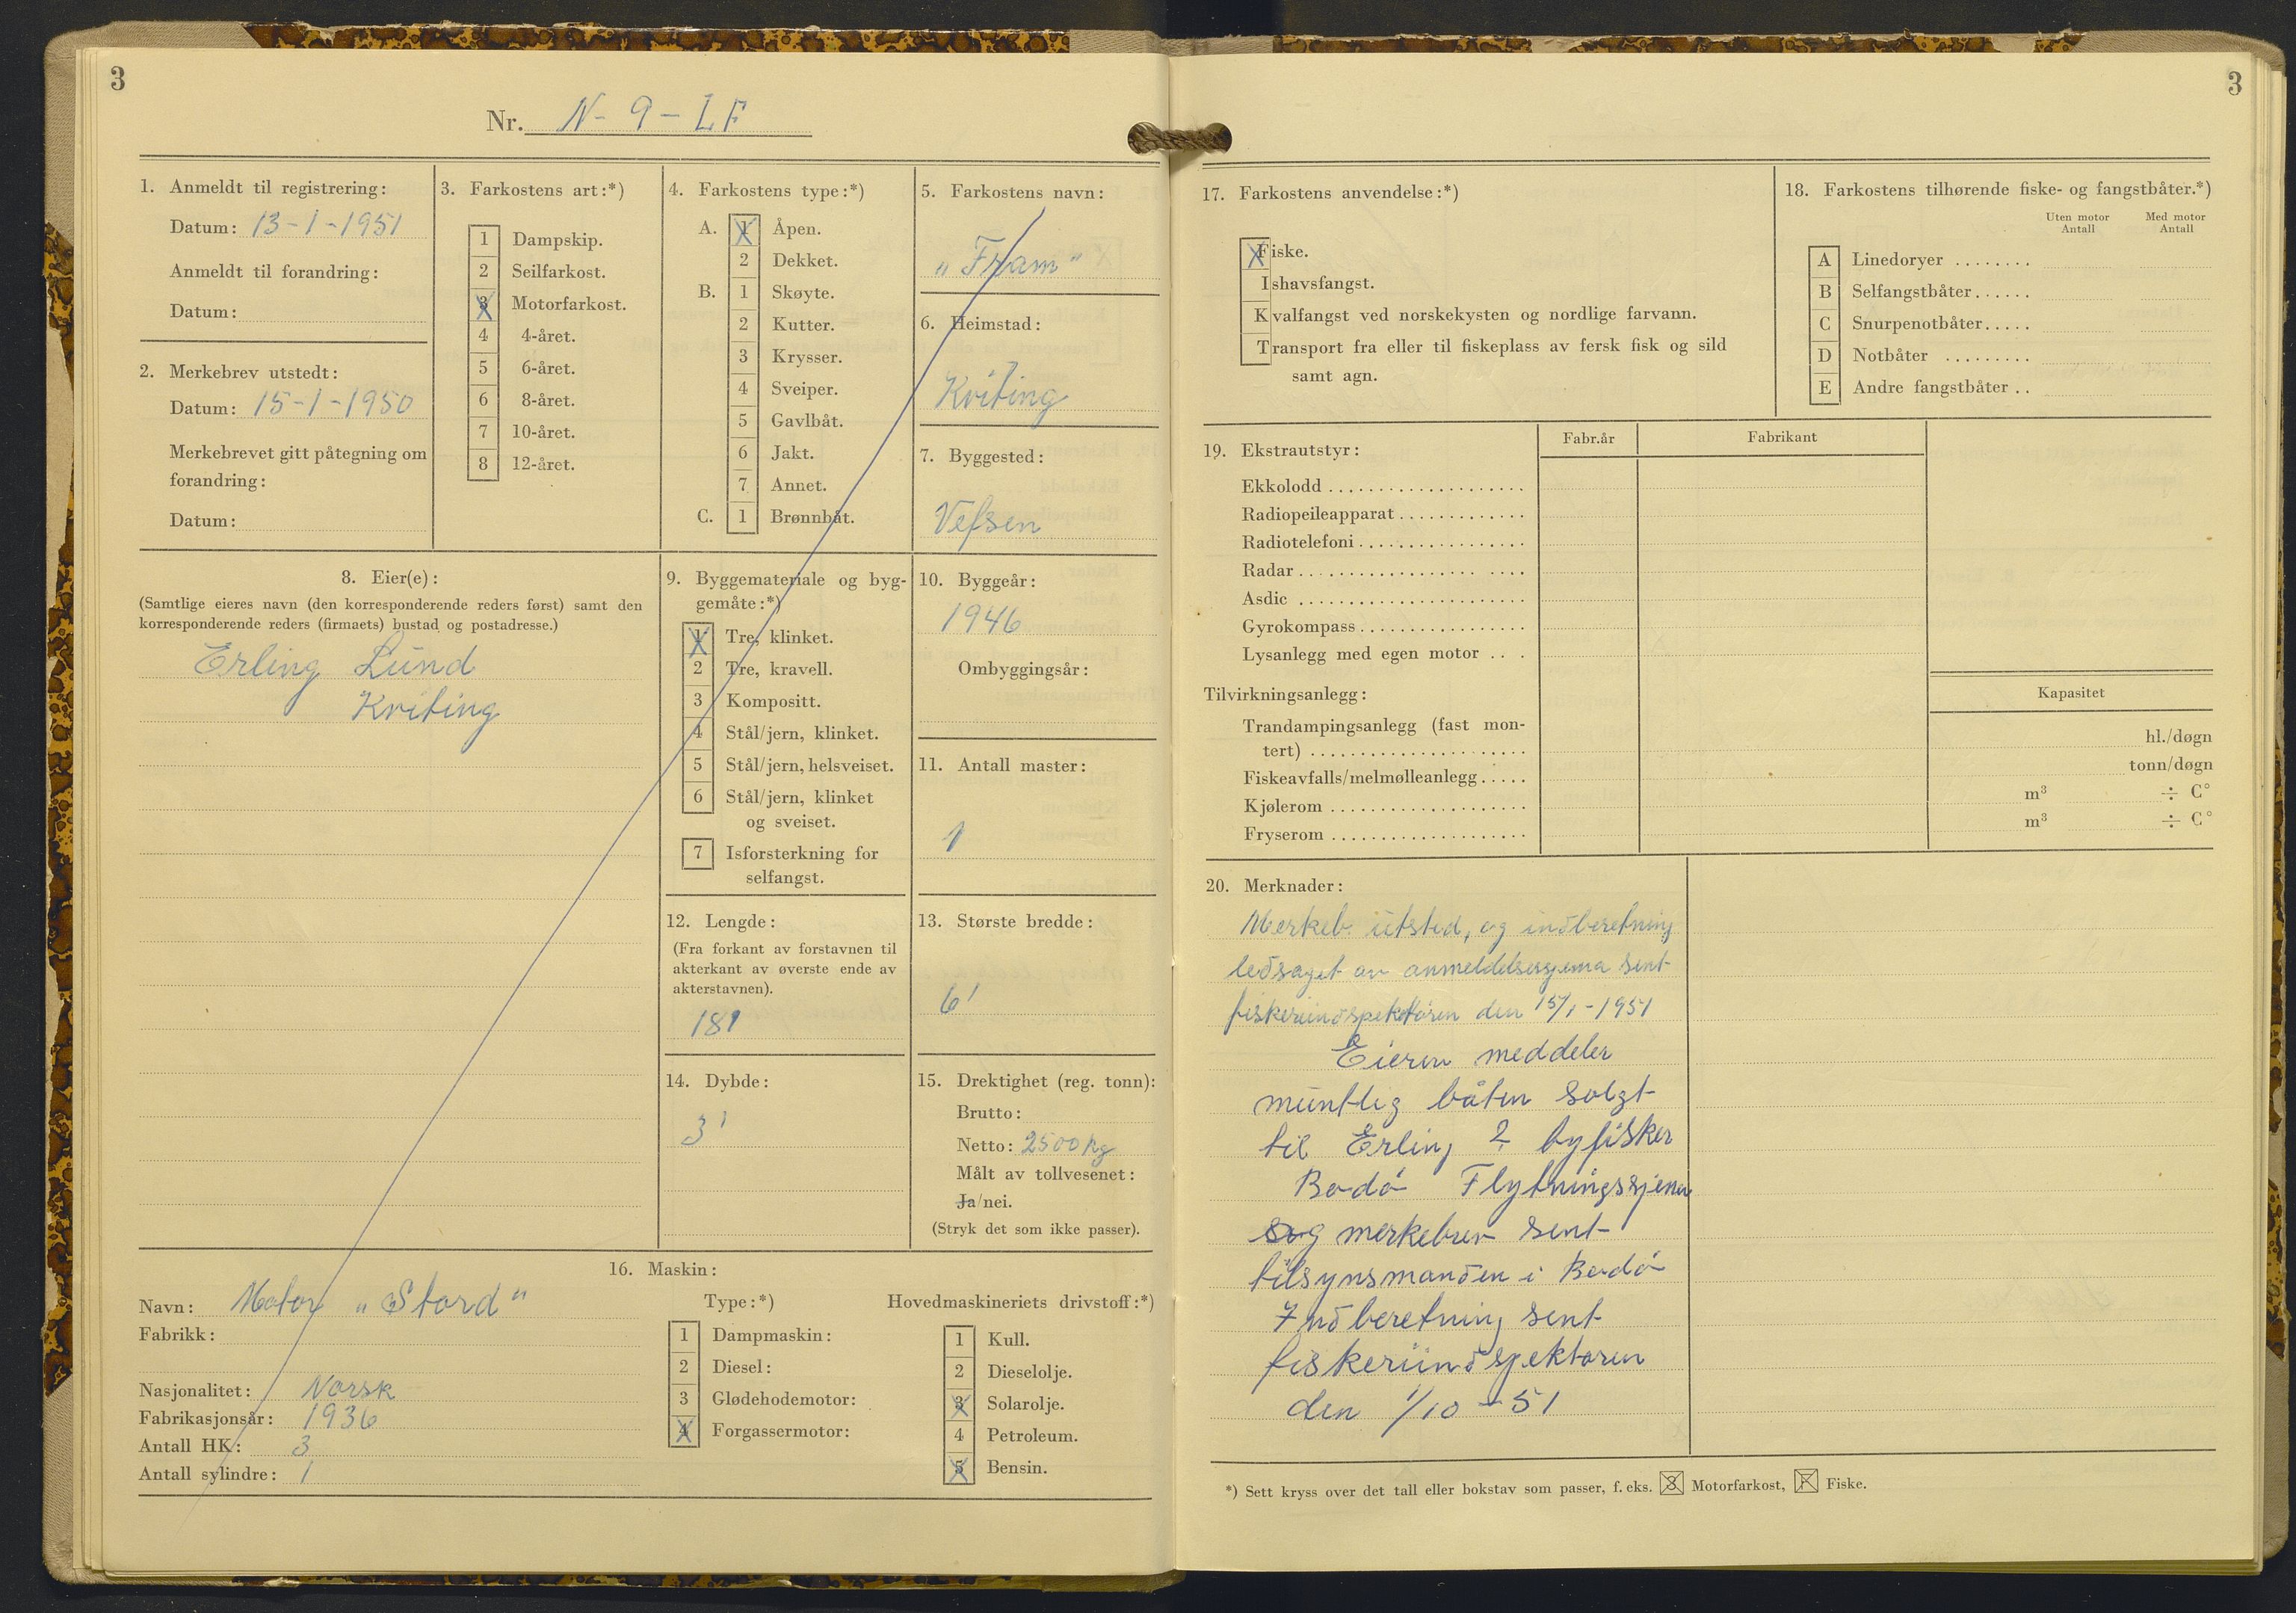 3
Nr. N-9-LF
1. Anmeldt til registrering:
Datum: 13-1-1951
Anmeldt til forandring:
Datum:
2. Merkebrev utstedt:
Datum: 15-1-1950
Merkebrevet gitt påtegning om
forandring:
Datum:
3. Farkostens art:*)
1 Dampskip.
2 Seilfarkost.
3 Motorfarkost.
4 4-året.
5 6-året.
6 8-året.
7 10-året.
8 12-året.
4. Farkostens type:*)
A. 1 Åpen.
2 Dekket.
B. 1 Skøyte.
2 Kutter.
3 Krysser.
4 Sveiper.
5 Gavlbåt.
6 Jakt.
7 Annet.
C. 1 Brønnbåt.
5. Farkostens navn:
"Fram"
6. Heimstad:
Kviting
7. Byggested:
Vefsen
8. Eier(e):
(Samtlige eieres navn (den korresponderende reders først) samt den
korresponderende reders (firmaets) bustad og postadresse.)
Erling Lund
Kviting
9. Byggemateriale og byg-
gemåte:*)
1 Tre, klinket.
2 Tre, kravell.
3 Kompositt.
4 Stål/jern, klinket.
5 Stål/jern, helsveiset.
6 Stål/jern, klinket
og sveiset.
7 Isforsterkning for
selfangst.
10. Byggeår:
1946
Ombyggingsår:
11. Antall master:
1
12. Lengde:
(Fra forkant av forstavnen til
akterkant av øverste ende av
akterstavnen).
18'
13. Største bredde:
6'
14. Dybde:
3'
15. Drektighet (reg. tonn):
Brutto:
Netto: 2500 kg
Målt av tollvesenet:
Ja/nei.
(Stryk det som ikke passer).
16. Maskin:
Navn: Motor "Stord"
Fabrikk:
Nasjonalitet: Norsk
Fabrikasjonsår: 1936
Antall HK: 3
Antall sylindre: 1
Type:*)
1 Dampmaskin:
2 Diesel:
3 Glødehodemotor:
4 Forgassermotor:
Hovedmaskineriets drivstoff:*)
1 Kull.
2 Dieselolje.
3 Solarolje.
4 Petroleum.
5 Bensin.
3
17. Farkostens anvendelse:*)
Fiske.
Ishavsfangst.
Kvalfangst ved norskekysten og nordlige farvann.
Transport fra eller til fiskeplass av fersk fisk og sild
samt agn.
18. Farkostens tilhørende fiske- og fangstbåter.*)
Uten motor Antall Med motor Antall
A Linedoryer ........
B Selfangstbåter......
C Snurpenotbåter.....
D Notbåter .........
E Andre fangstbåter ..
19. Ekstrautstyr: Fabr.år Fabrikant
Ekkolodd
Radiopeileapparat
Radiotelefoni
Radar
Asdic
Gyrokompass
Lysanlegg med egen motor
Tilvirkningsanlegg: Kapasitet
Trandampingsanlegg (fast mon-
tert) hl./døgn
Fiskeavfalls/melmølleanlegg tonn/døgn
Kjølerom m³ ÷ C°
Fryserom m³ ÷ C°
20. Merknader:
Merkeb. utsted, og indberetning
ledsaget av anmeldelsesgjema sent
fiskeriindspektøren den 15/1-1951
Eieren meddeler
muntlig båten solgt
til Erling ? byfisker
Bodø Flytningssjema
og merkebrev sent
tilsynsmanden i Bodø
Indberetning sent
fiskeriindspektøren
den 1/10-51
*) Sett kryss over det tall eller bokstav som passer, f. eks. 3 Motorfarkost, F Fiske.